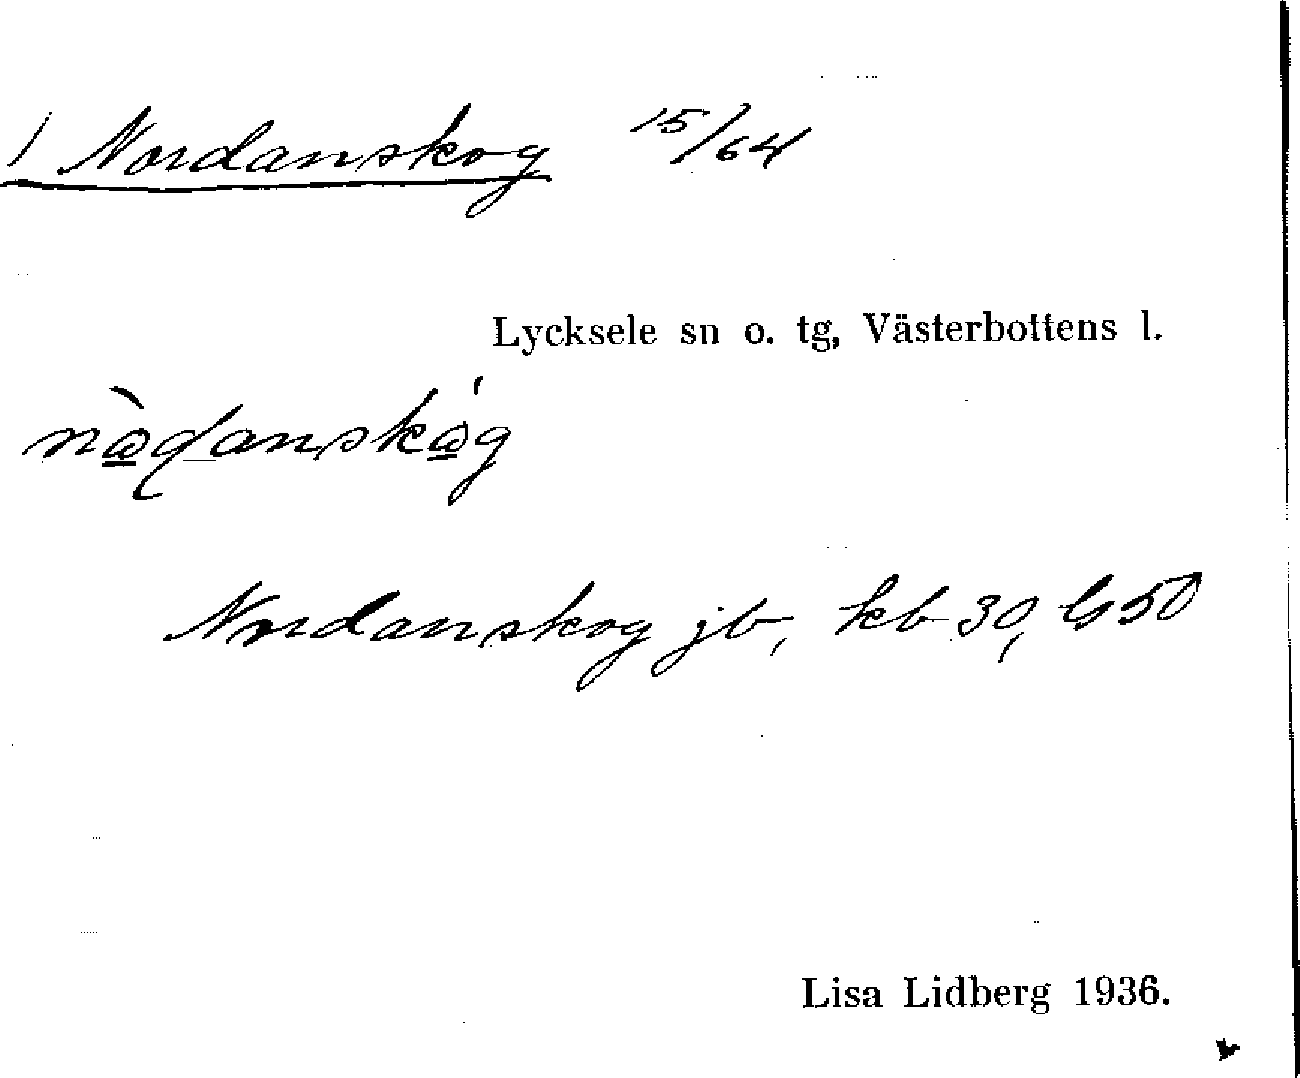 1 Nordanskog 15/64
Lycksele sn o. tg, Västerbottens l.
Nordanskog jb, kb 30, G 50
Lisa Lidberg 1936.